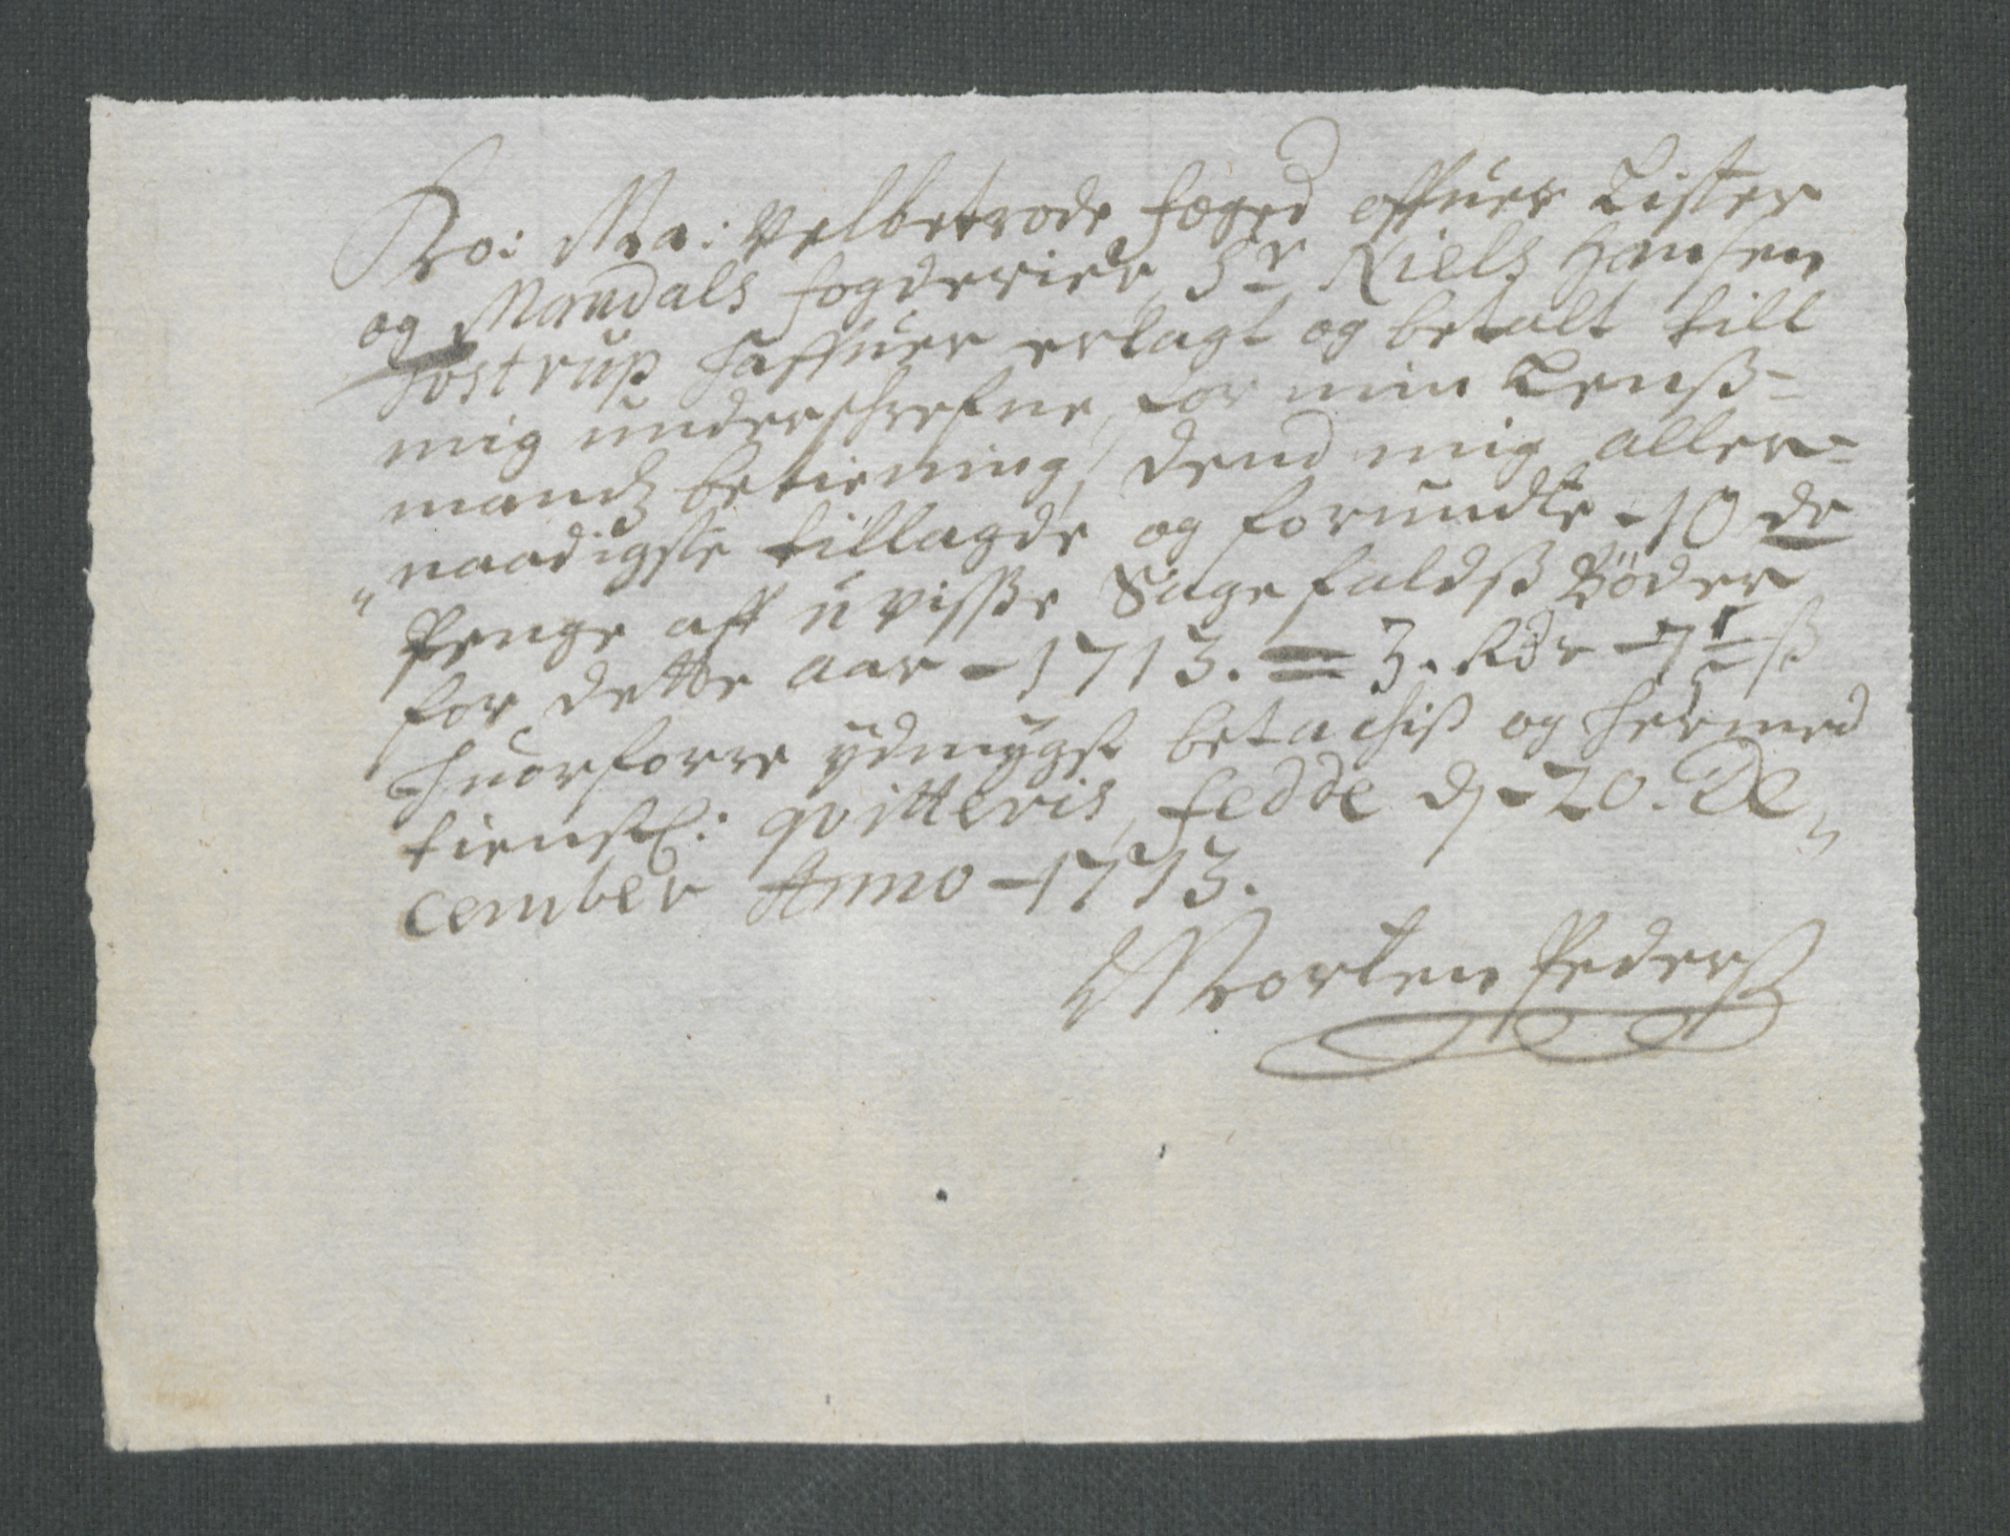 Ko: Ma: Velbetrode foged offuer Lister
og Mandals fogderier, Sr Niels Hansen
Tostrup haffuer erlagt og betalt till
mig underschrefne, for min Lenß-
mandz betiening, dend mig aller-
naadigste tillagde og forundte - 10 de
Penge aff uvisse Sagefaldß Bøder
for dette aar - 1713. = 3. Rdr - 7 ß
huorforre ydmygst betachiß og hermed
tienstl: qvitteris, Fedde dn - 20. De,,
cember Anno - 1713.
Morten Pederß